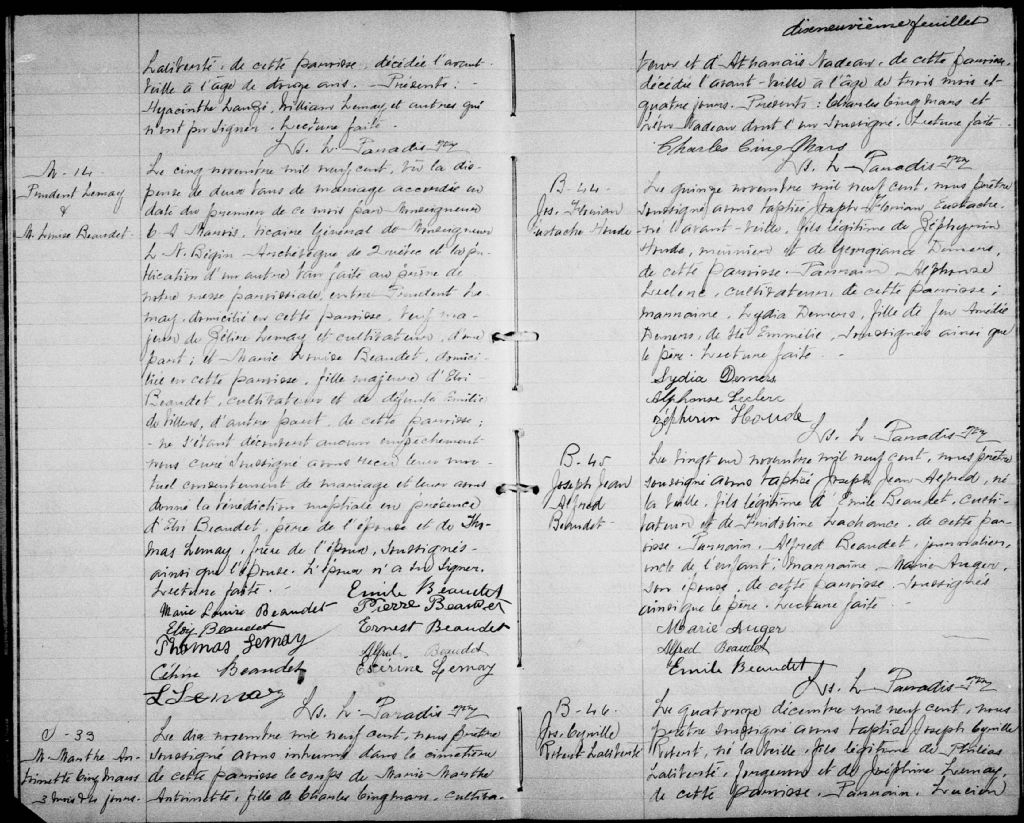 Laliberté, de cette paroisse, décédée l'avant-
veille à l'âge de douze ans. - Présents :
Hyacinthe Lauzé, William Lemay et autres qui
n'ont pu signer. Lecture faite. -
Ls. L. Paradis Ptr
M - 14.
Prudent Lemay
&
M. Louise Beaudet.
Le cinq novembre mil neuf cent, vu la dis-
pense de deux bans de mariage accordée en
date du premier de ce mois par Monseigneur
C. A. Marois, vicaire Général de Monseigneur
L. N. Bégin Archevêque de Québec et la pu-
blication d'un autre ban faite au prône de
notre messe paroissiale, entre Prudent Le-
may, domicilié en cette paroisse, veuf ma-
jeur de Céline Lemay et cultivateur, d'une
part; et Marie Louise Beaudet, domici-
liée en cette paroisse, fille majeure d'Eloi
Beaudet, cultivateur et de défunte Emilie
de Villers, d'autre part, de cette paroisse;
- ne s'étant découvert aucun empêchement
nous curé soussigné avons reçu leur mu-
tuel consentement de mariage et leur avons
donné la bénédiction nuptiale en présence
d'Eloi Beaudet, père de l'épouse et de Tho-
mas Lemay, frère de l'époux, soussignés
ainsi que l'épouse. L'époux n'a su signer.
Lecture faite. -
Emile Beaudet
Marie Louise Beaudet
Pierre Beaudet
Eloy Beaudet
Ernest Beaudet
Thomas Lemay
Alfred Beaudet
Céline Beaudet
Exérine Lemay
L Lemay
Ls. L. Paradis Ptr
S - 33
M. Marthe An-
toinette Cinqmars
3 mois & 4 jours.
Le dix novembre mil neuf cent, nous prêtre
soussigné avons inhumé dans le cimetière
de cette paroisse le corps de Marie Marthe
Antoinette, fille de Charles Cinqmars, cultiva-
dixneuvième feuillet
teur et d'Athanaïs Nadeau, de cette paroisse,
décédée l'avant-veille à l'âge de trois mois et
quatre jours. Présents : Charles Cinqmars et
Léon Nadeau dont l'un soussigné. Lecture faite. -
Charles Cinq-Mars
Ls. L. Paradis Ptr
B - 44.
Jos. Florian
Eustache Houde
Le quinze novembre mil neuf cent, nous prêtre
soussigné avons baptisé Joseph Florian Eustache,
né avant-veille, fils légitime de Zéphyrin
Houde, meunier et de Georgiana Demers,
de cette paroisse. Parrain, Alphonse
Leclerc, cultivateur, de cette paroisse;
marraine, Lydia Demers, fille de feu Amédée
Demers, de Ste Emmélie, soussignés ainsi que
le père. Lecture faite. -
Lydia Demers
Alphonse Leclerc
Zéphirin Houde
Ls. L. Paradis Ptr
B - 45
Joseph Jean
Alfred
Beaudet -
Le vingt un novembre mil neuf cent, nous prêtre
soussigné avons baptisé Joseph Jean Alfred, né
la veille, fils légitime d'Emile Beaudet, culti-
vateur et de Fridoline Lachance, de cette pa-
roisse. Parrain, Alfred Beaudet, journalier,
oncle de l'enfant; marraine Marie Auger,
son épouse, de cette paroisse. Soussignés
ainsi que le père. Lecture faite -
Marie Auger
Alfred Beaudet
Emile Beaudet
Ls. L. Paradis Ptr
B - 46.
Jos. Cyrille
Robert Laliberté
Le quatorze décembre mil neuf cent, nous
prêtre soussigné avons baptisé Joseph Cyrille
Robert, né la veille, fils légitime de Philéas
Laliberté, forgeron et de Joséphine Lemay,
de cette paroisse. Parrain, Lucien